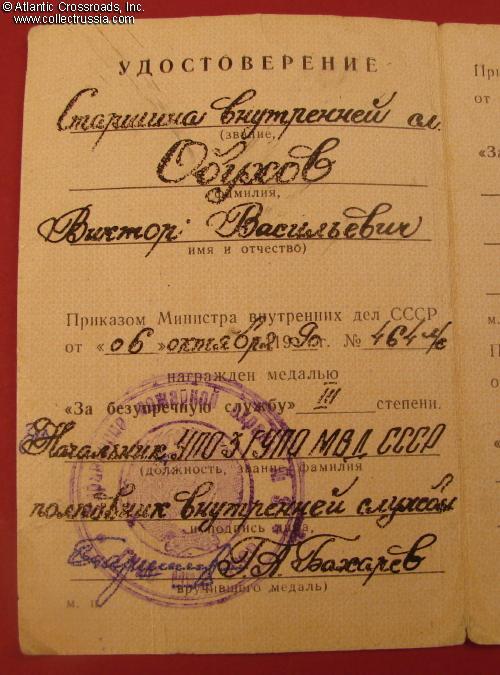 © Atlantic Crossroads, Inc.
www.collectrussia.com
УДОСТОВЕРЕНИЕ
Старшина внутренней сл.
(звание,
Обухов
фамилия,
Виктор Васильевич
имя и отчество)
Приказом Министра внутренних дел СССР
от «06» октября 1990 г. № 464 л/с
награжден медалью
«За безупречную службу» III степени.
Начальник УПО-3 ГУПО МВД СССР
(должность, звание, фамилия
полковник внутренней службы
и подпись лица,
Г.А Бахарев
вручившего медаль)
М. П.
При
от
«За
м.